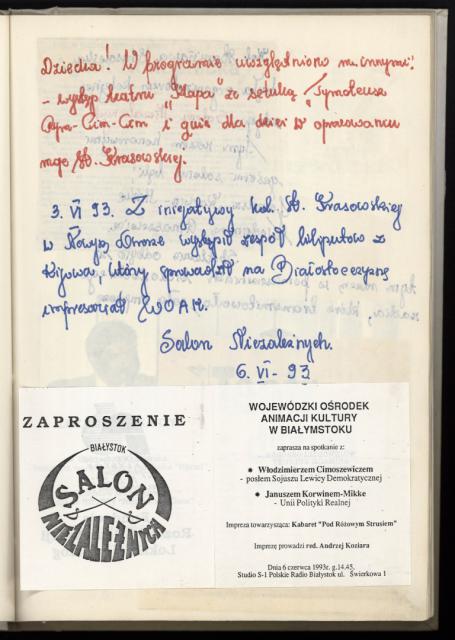 Dziecka! W programie uwzględniono m. innymi:
- występ teatru "Klapa" ze sztuką "Tymoteusz
Rym-Cim-Cim i quiz dla dzieci w opracowaniu
mgr St. Krasowskiej.
3. VI 93. Z inicjatywy kol. St. Krasowskiej
w Nowym Dworze wystąpił zespół liliputów z
Kijowa, który sprowadził na Białostocczyznę
impresariat WOAK.
Salon Niezależnych.
6. VI - 93
ZAPROSZENIE
BIAŁYSTOK
SALON
NIEZALEŻNYCH
WOJEWÓDZKI OŚRODEK
ANIMACJI KULTURY
W BIAŁYMSTOKU
zaprasza na spotkanie z:
● Włodzimierzem Cimoszewiczem
- posłem Sojuszu Lewicy Demokratycznej
● Januszem Korwinem-Mikke
- Unii Polityki Realnej
Impreza towarzysząca: Kabaret "Pod Różowym Strusiem"
Imprezę prowadzi red. Andrzej Koziara
Dnia 6 czerwca 1993r. g.14.45,
Studio S-1 Polskie Radio Białystok ul. Świerkowa 1